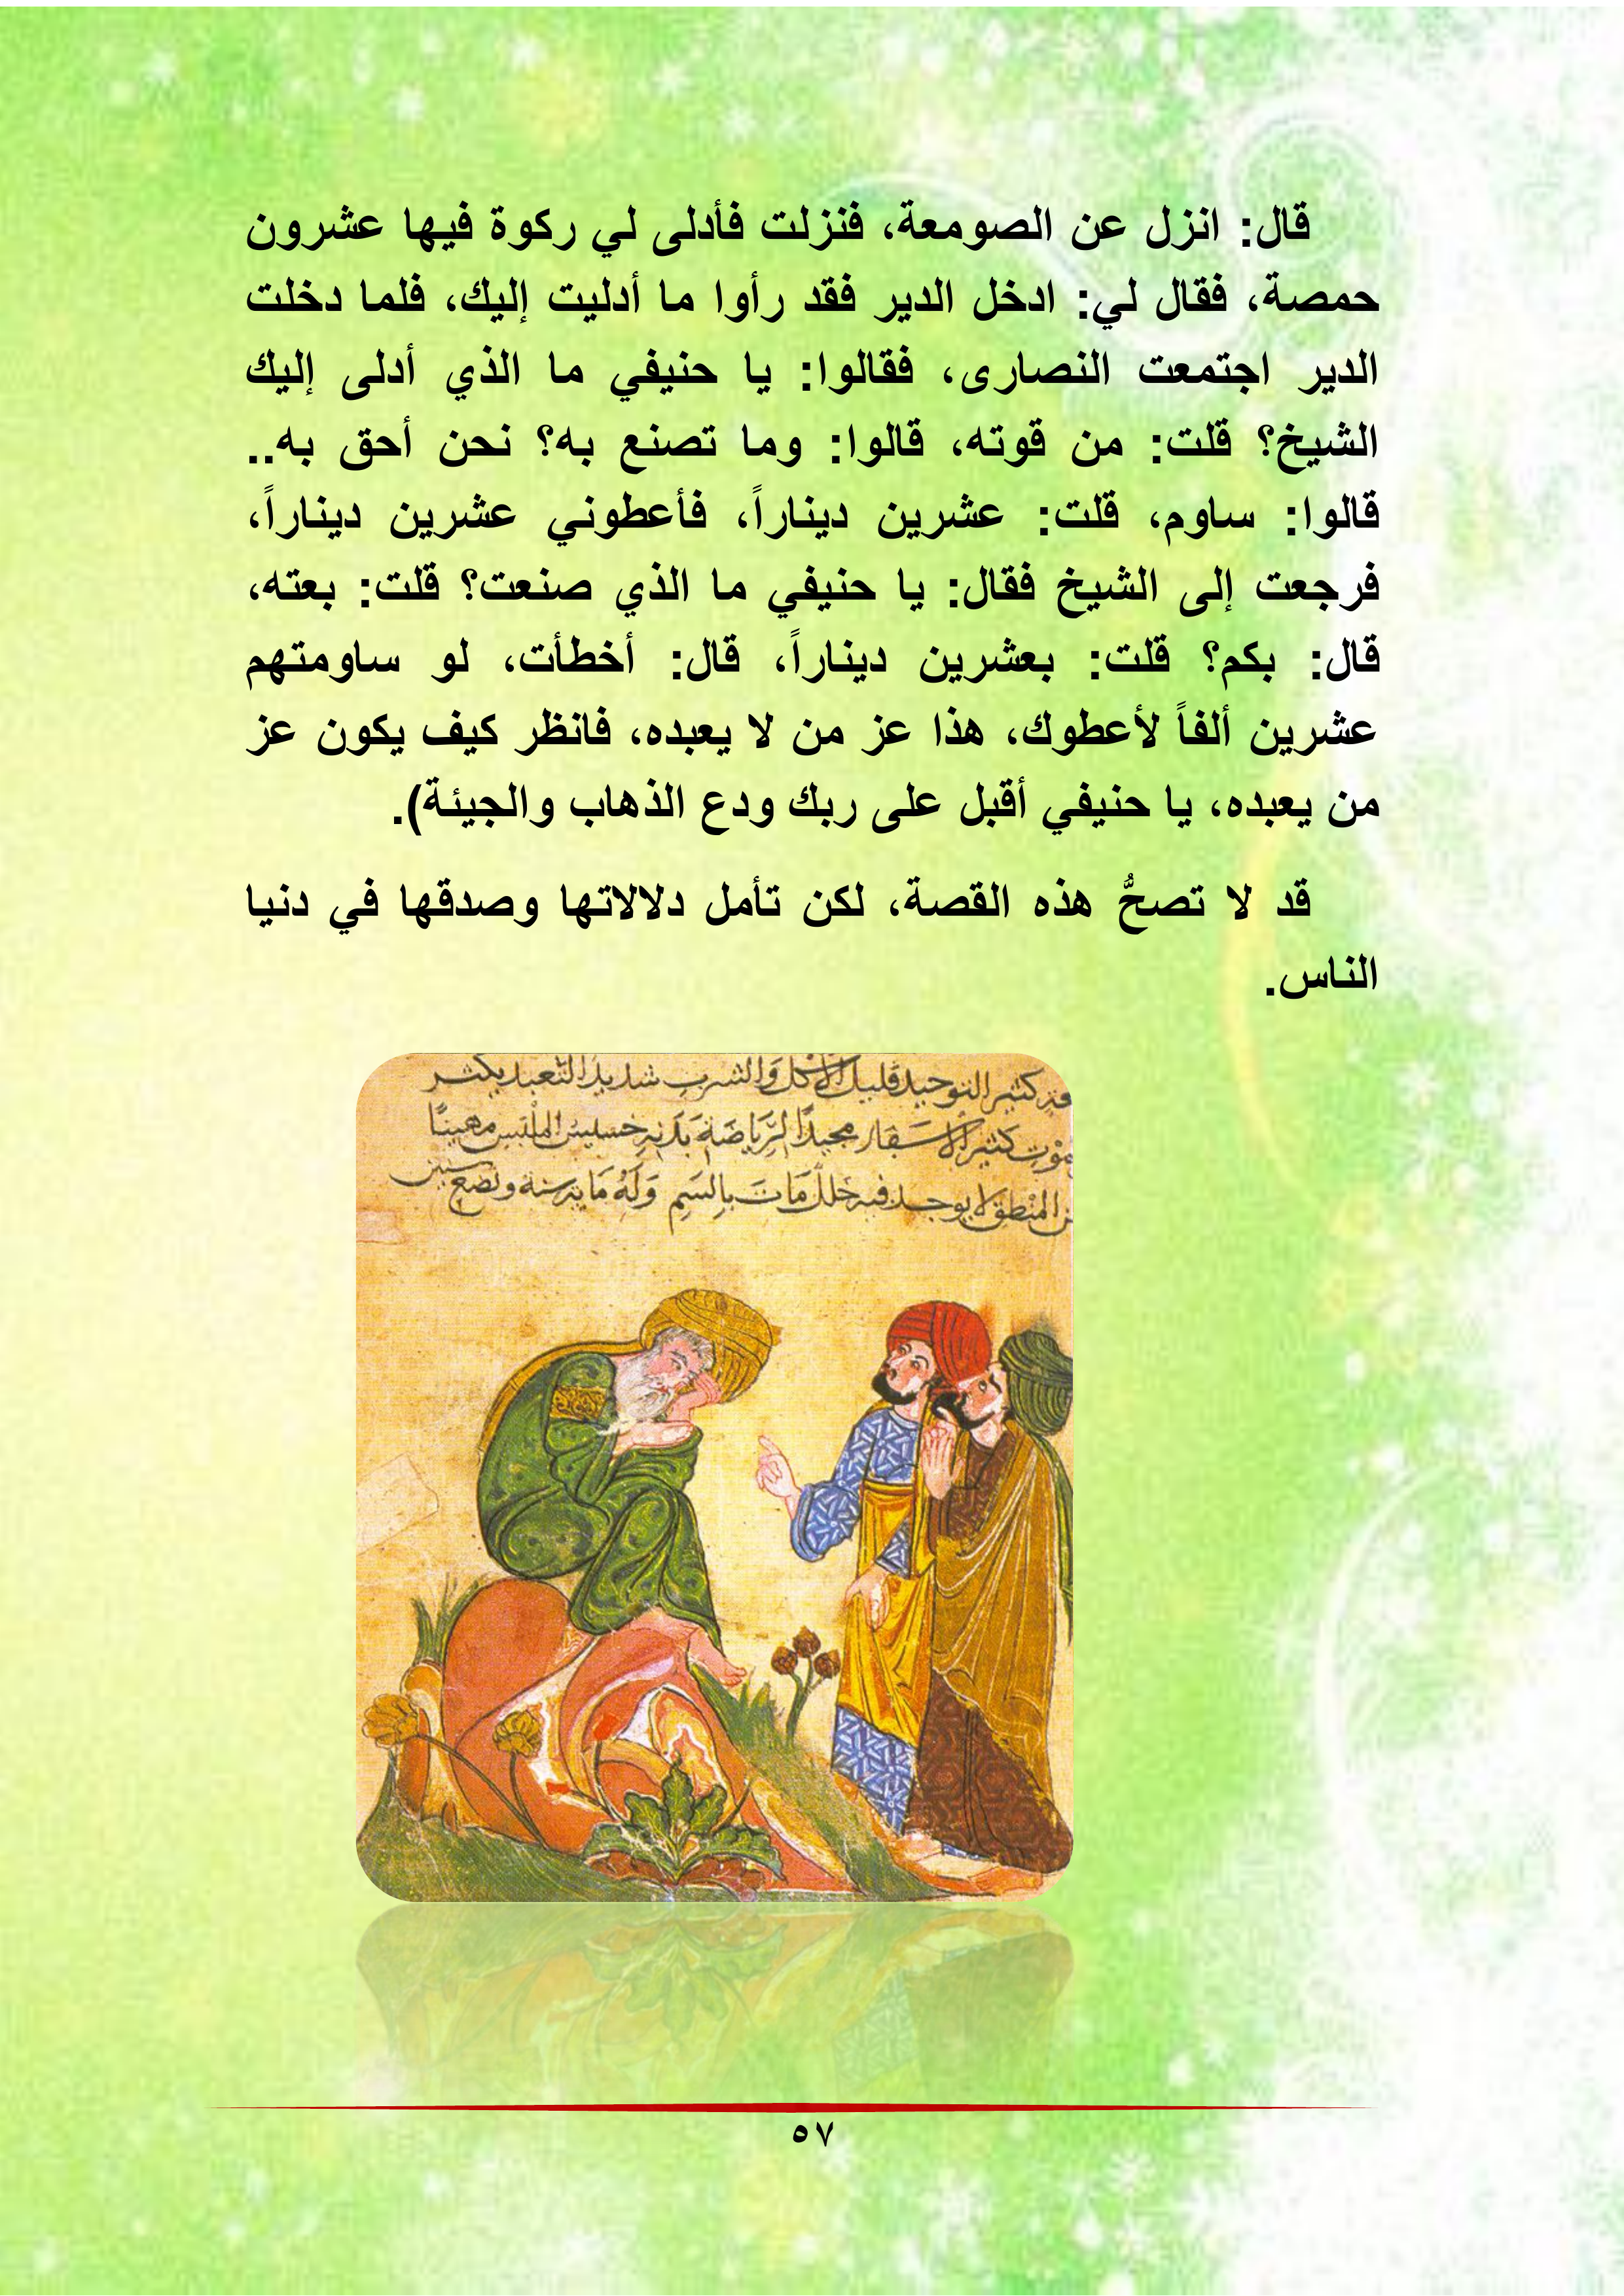 قال: انزل عن الصومعة، فنزلت فأدلى لي ركوة فيها عشرون
حمصة، فقال لي: ادخل الدير فقد رأوا ما أدليت إليك، فلما دخلت
الدير اجتمعت النصارى، فقالوا: يا حنيفي ما الذي أدلى إليك
الشيخ؟ قلت: من قوته، قالوا: وما تصنع به؟ نحن أحق به..
قالوا: ساوم، قلت: عشرين ديناراً، فأعطوني عشرين ديناراً،
فرجعت إلى الشيخ فقال: يا حنيفي ما الذي صنعت؟ قلت: بعته،
قال: بكم؟ قلت: بعشرين ديناراً، قال: أخطأت، لو ساومتهم
عشرين ألفاً لأعطوك، هذا عز من لا يعبده، فانظر كيف يكون عز
من يعبده، يا حنيفي أقبل على ربك ودع الذهاب والجيئة).
قد لا تصحُّ هذه القصة، لكن تأمل دلالاتها وصدقها في دنيا
الناس.
كثير التوحيد قليل الاكل والشرب شديد التعبد يكثر
كثير الاسفار مجيدًا لرياضة بدنه خسيس الملبس مهينًا
المنطق لا يوجد فيه خلل مات بالسم وله ماية سنة وبضع سنين
٥٧